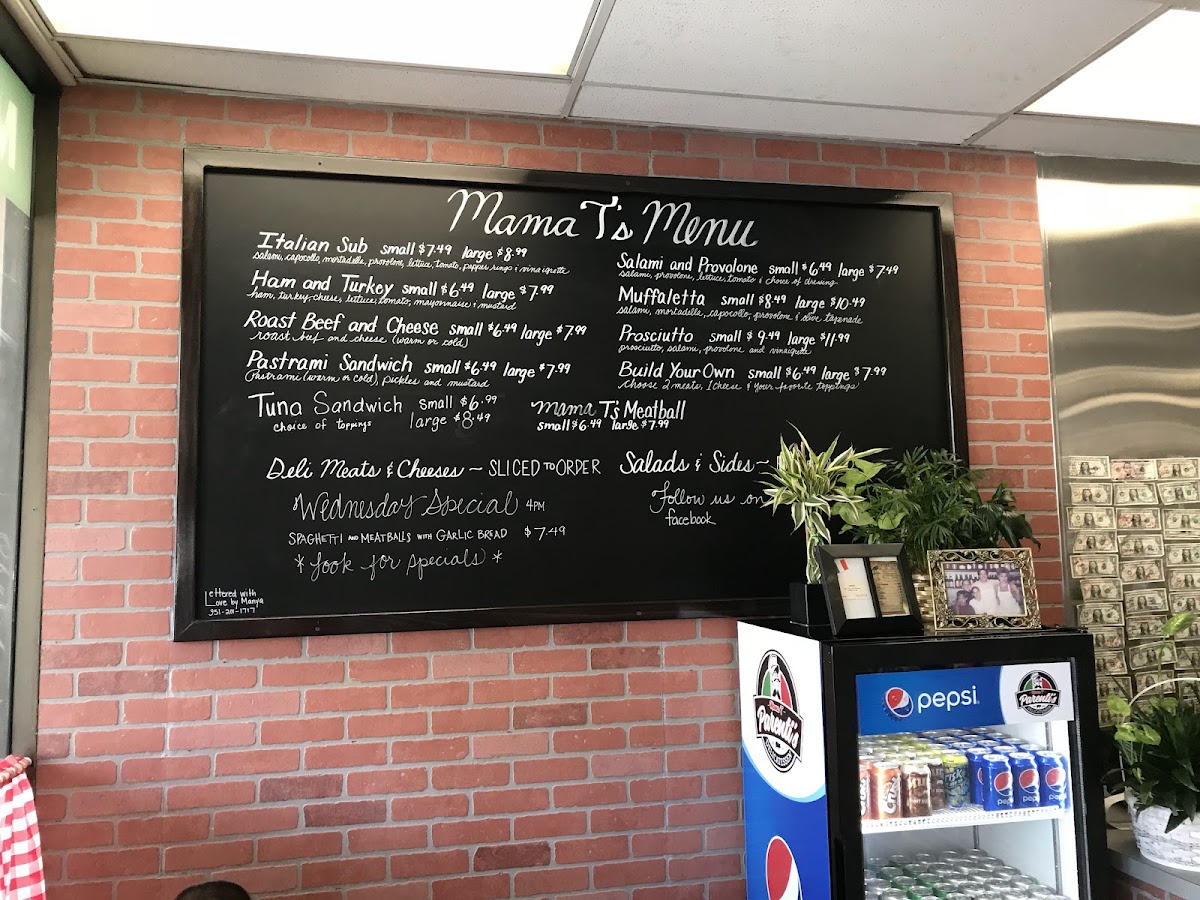 Mama T's Menu
Italian Sub small $7.49 large $8.99
salami, capocollo, mortadella, provolone, lettuce, tomato, pepper rings & vinaigrette
Ham and Turkey small $6.49 large $7.99
ham, turkey, cheese, lettuce, tomato, mayonnaise & mustard
Roast Beef and Cheese small $6.49 large $7.99
roast beef and cheese (warm or cold)
Pastrami Sandwich small $6.49 large $7.99
Pastrami (warm or cold), pickles and mustard
Tuna Sandwich small $6.99
choice of toppings large $8.49
Salami and Provolone small $6.49 large $7.49
salami, provolone, lettuce, tomato & choice of dressing
Muffaletta small $8.49 large $10.49
salami, mortadella, capocollo, provolone & olive tapenade
Prosciutto small $9.49 large $11.99
prosciutto, salami, provolone and vinaigrette
Build Your Own small $6.49 large $7.99
choose 2 meats, 1 cheese & your favorite toppings
Mama T's Meatball
small $6.49 large $7.99
Deli Meats & Cheeses ~ SLICED TO ORDER
Salads & Sides ~
Wednesday Special 4PM
SPAGHETTI AND MEATBALLS WITH GARLIC BREAD $7.49
*Look for specials*
Follow us on
facebook
Lettered with
Love by Manya
951-201-1717
pepsi
Parenti's
Parenti's
pepsi
pepsi
pepsi